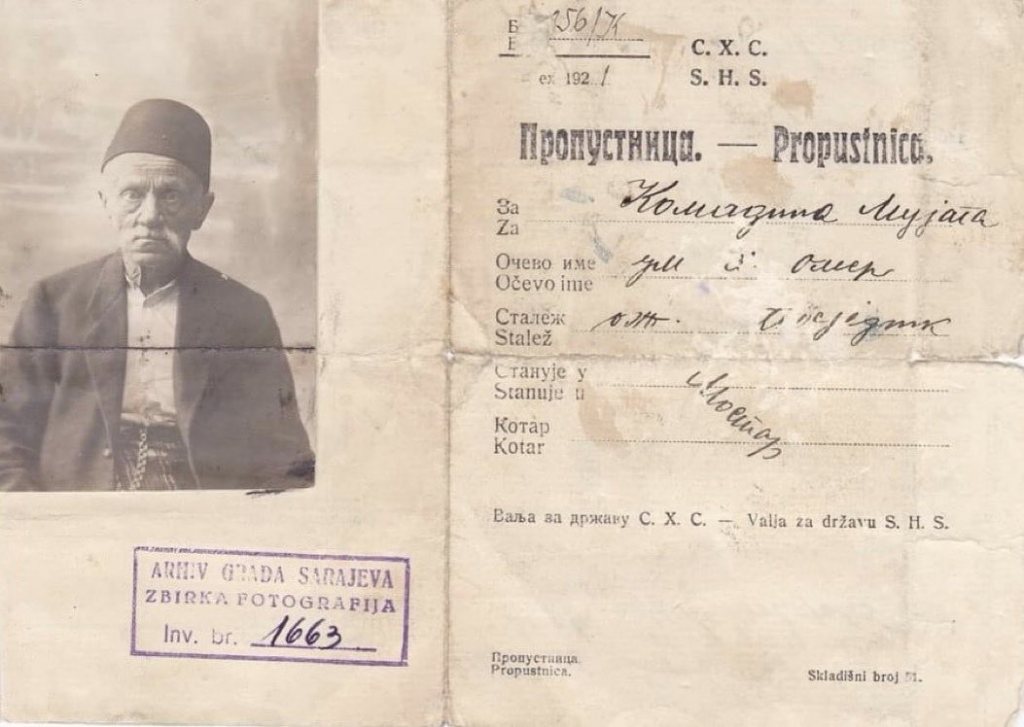 Б 256/К
Б
ex 1921
С. Х. С.
S. H. S.
Пропустница. — Propustnica.
За
Za
Комадина Мујага
Очево име
Očevo ime
ум омер
Сталеж
Stalež
ож. Посједник
Станује у
Stanuje u
Мостар
Котар
Kotar
Ваља за државу С. Х. С. — Valja za državu S. H. S.
ARHIV GRADA SARAJEVA
ZBIRKA FOTOGRAFIJA
Inv. br. 1663
Пропустница.
Propustnica.
Skladišni broj 51.